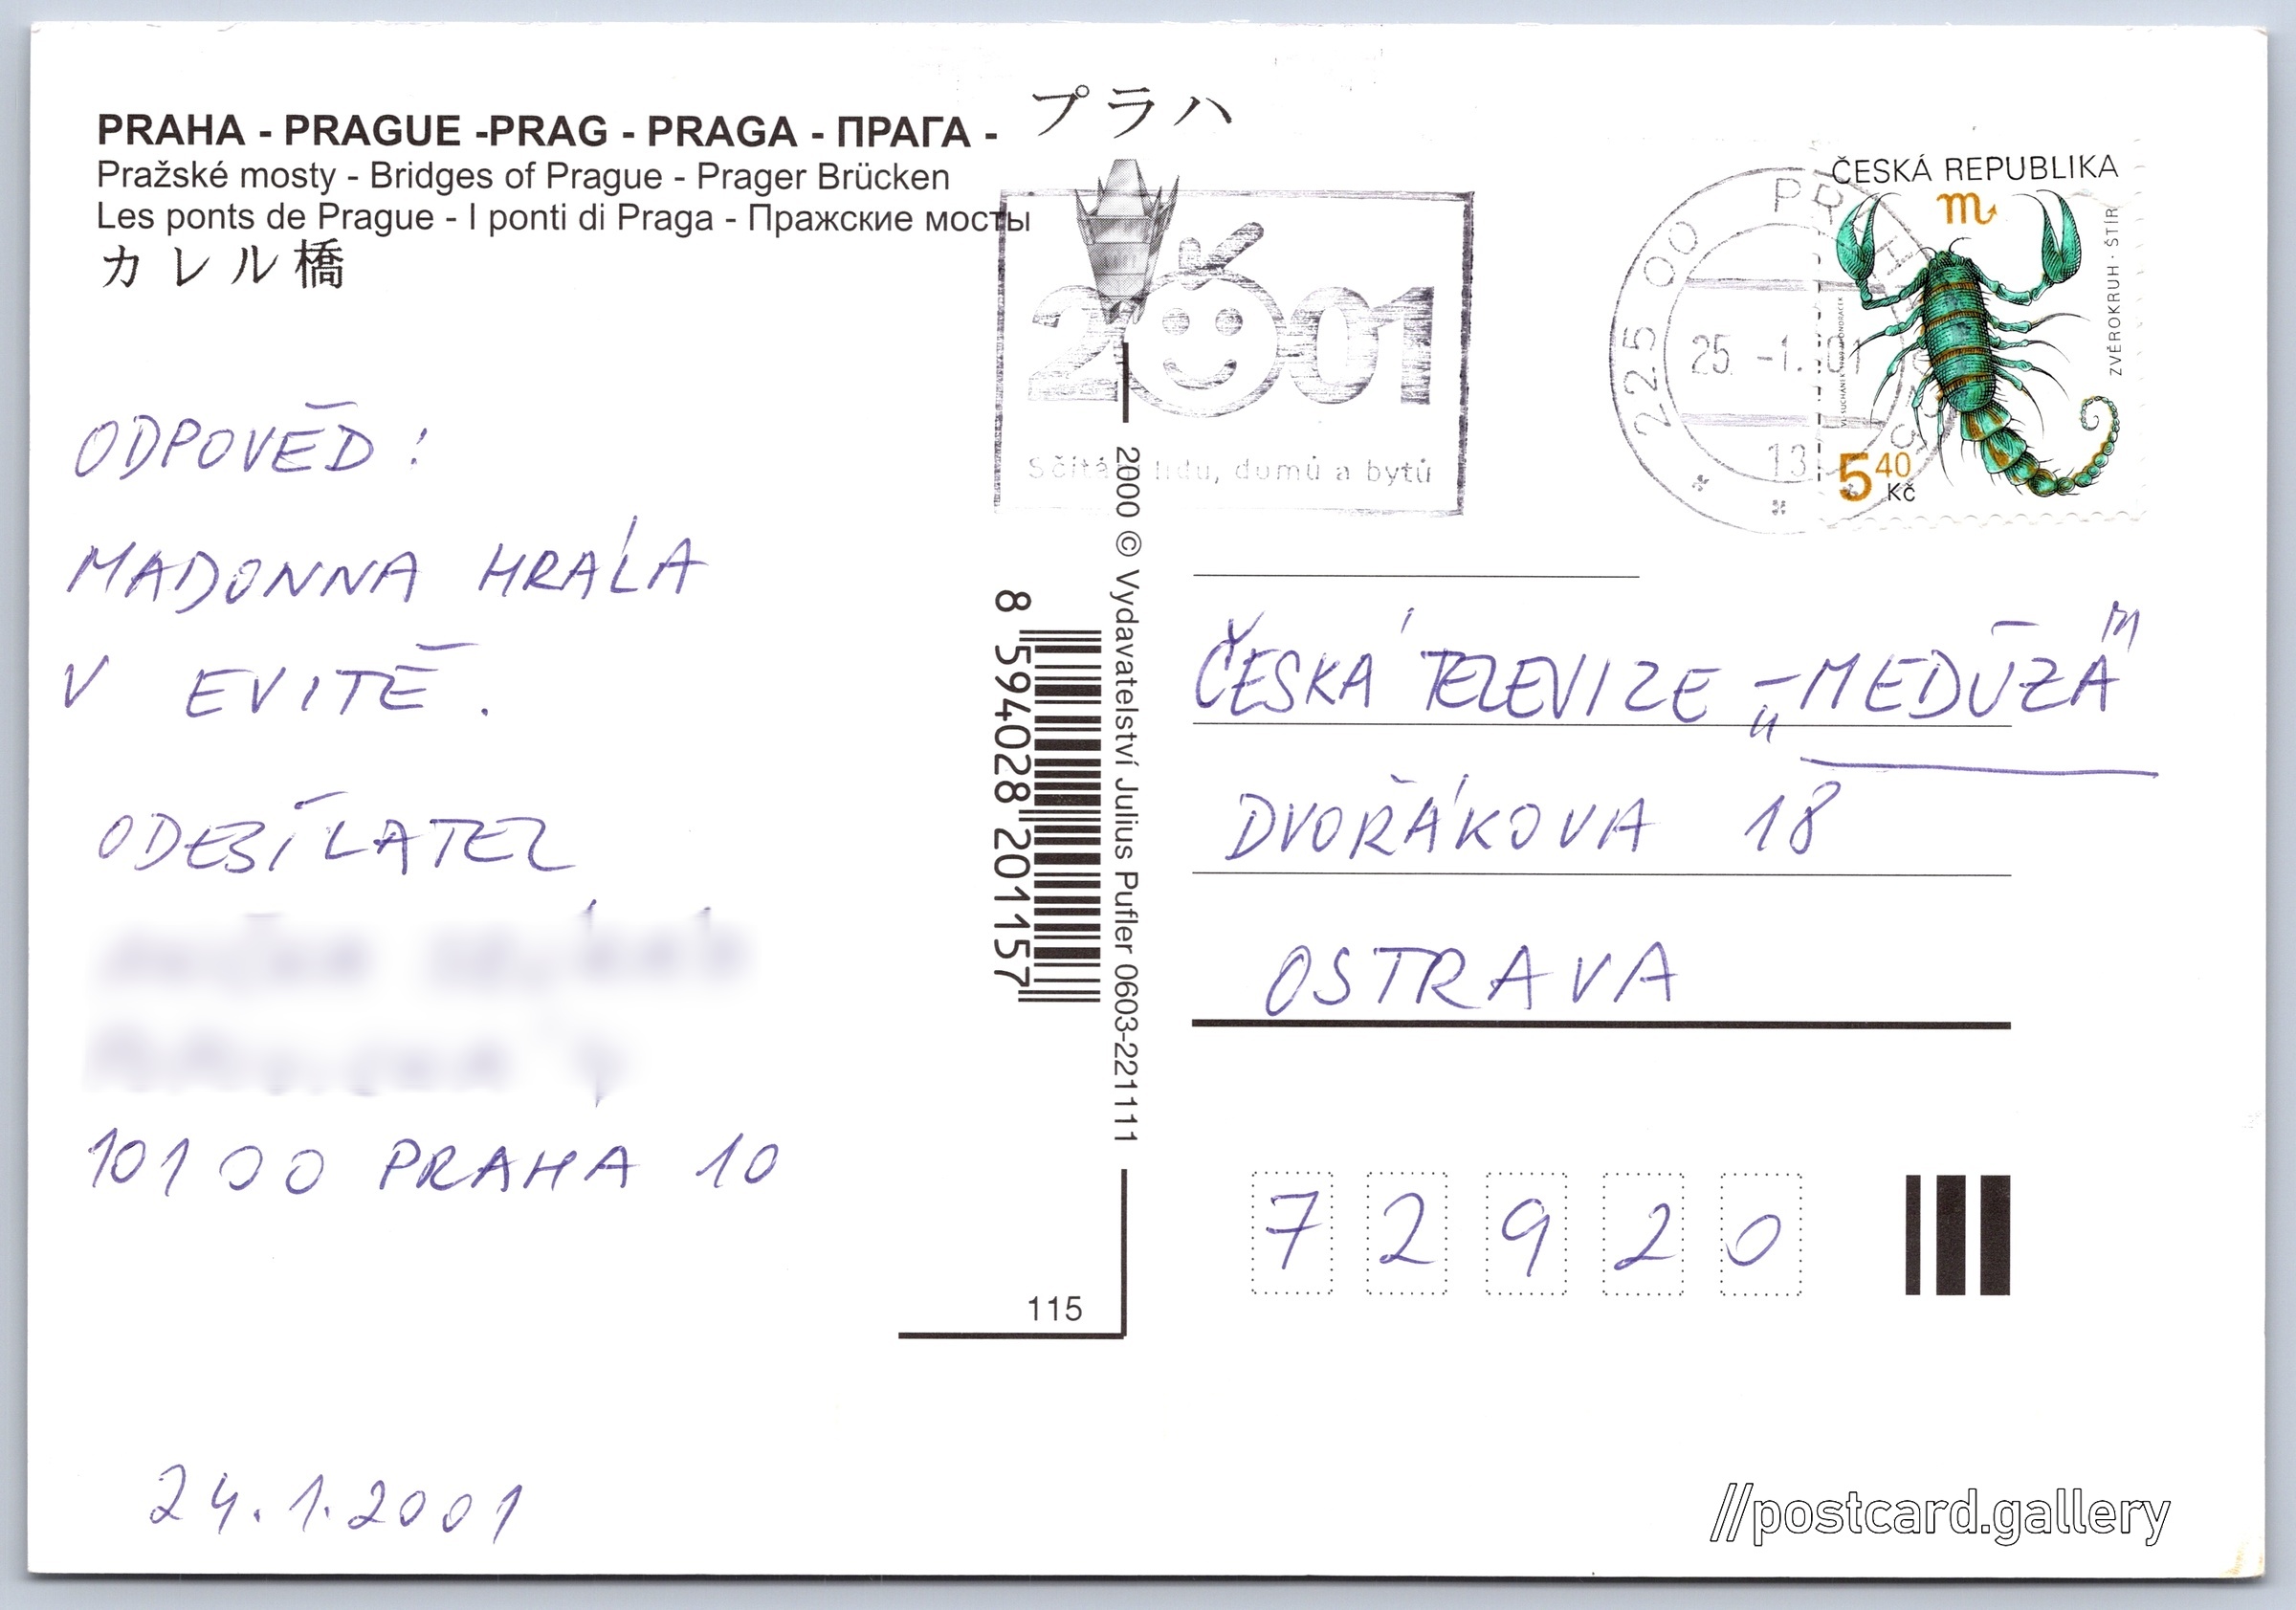 PRAHA - PRAGUE -PRAG - PRAGA - ПРАГА - プラハ
Pražské mosty - Bridges of Prague - Prager Brücken
Les ponts de Prague - I ponti di Praga - Пражские мосты
カレル橋
ODPOVĚĎ:
MADONNA HRÁLA
V EVITĚ.
ODESÍLATEL
101 00 PRAHA 10
24.1.2001
2001
Sčítá lidu, domů a bytů
8 594028 201157
2000 © Vydavatelství Julius Pufler 0603-221111
115
225 00 PRAH
25. -1. 01
13
ČESKÁ REPUBLIKA
ZVĚROKRUH · ŠTÍR
5 40
Kč
ČESKÁ TELEVIZE - „MEDÚZA"
DVOŘÁKOVA 18
OSTRAVA
7 2 9 2 0
//postcard.gallery